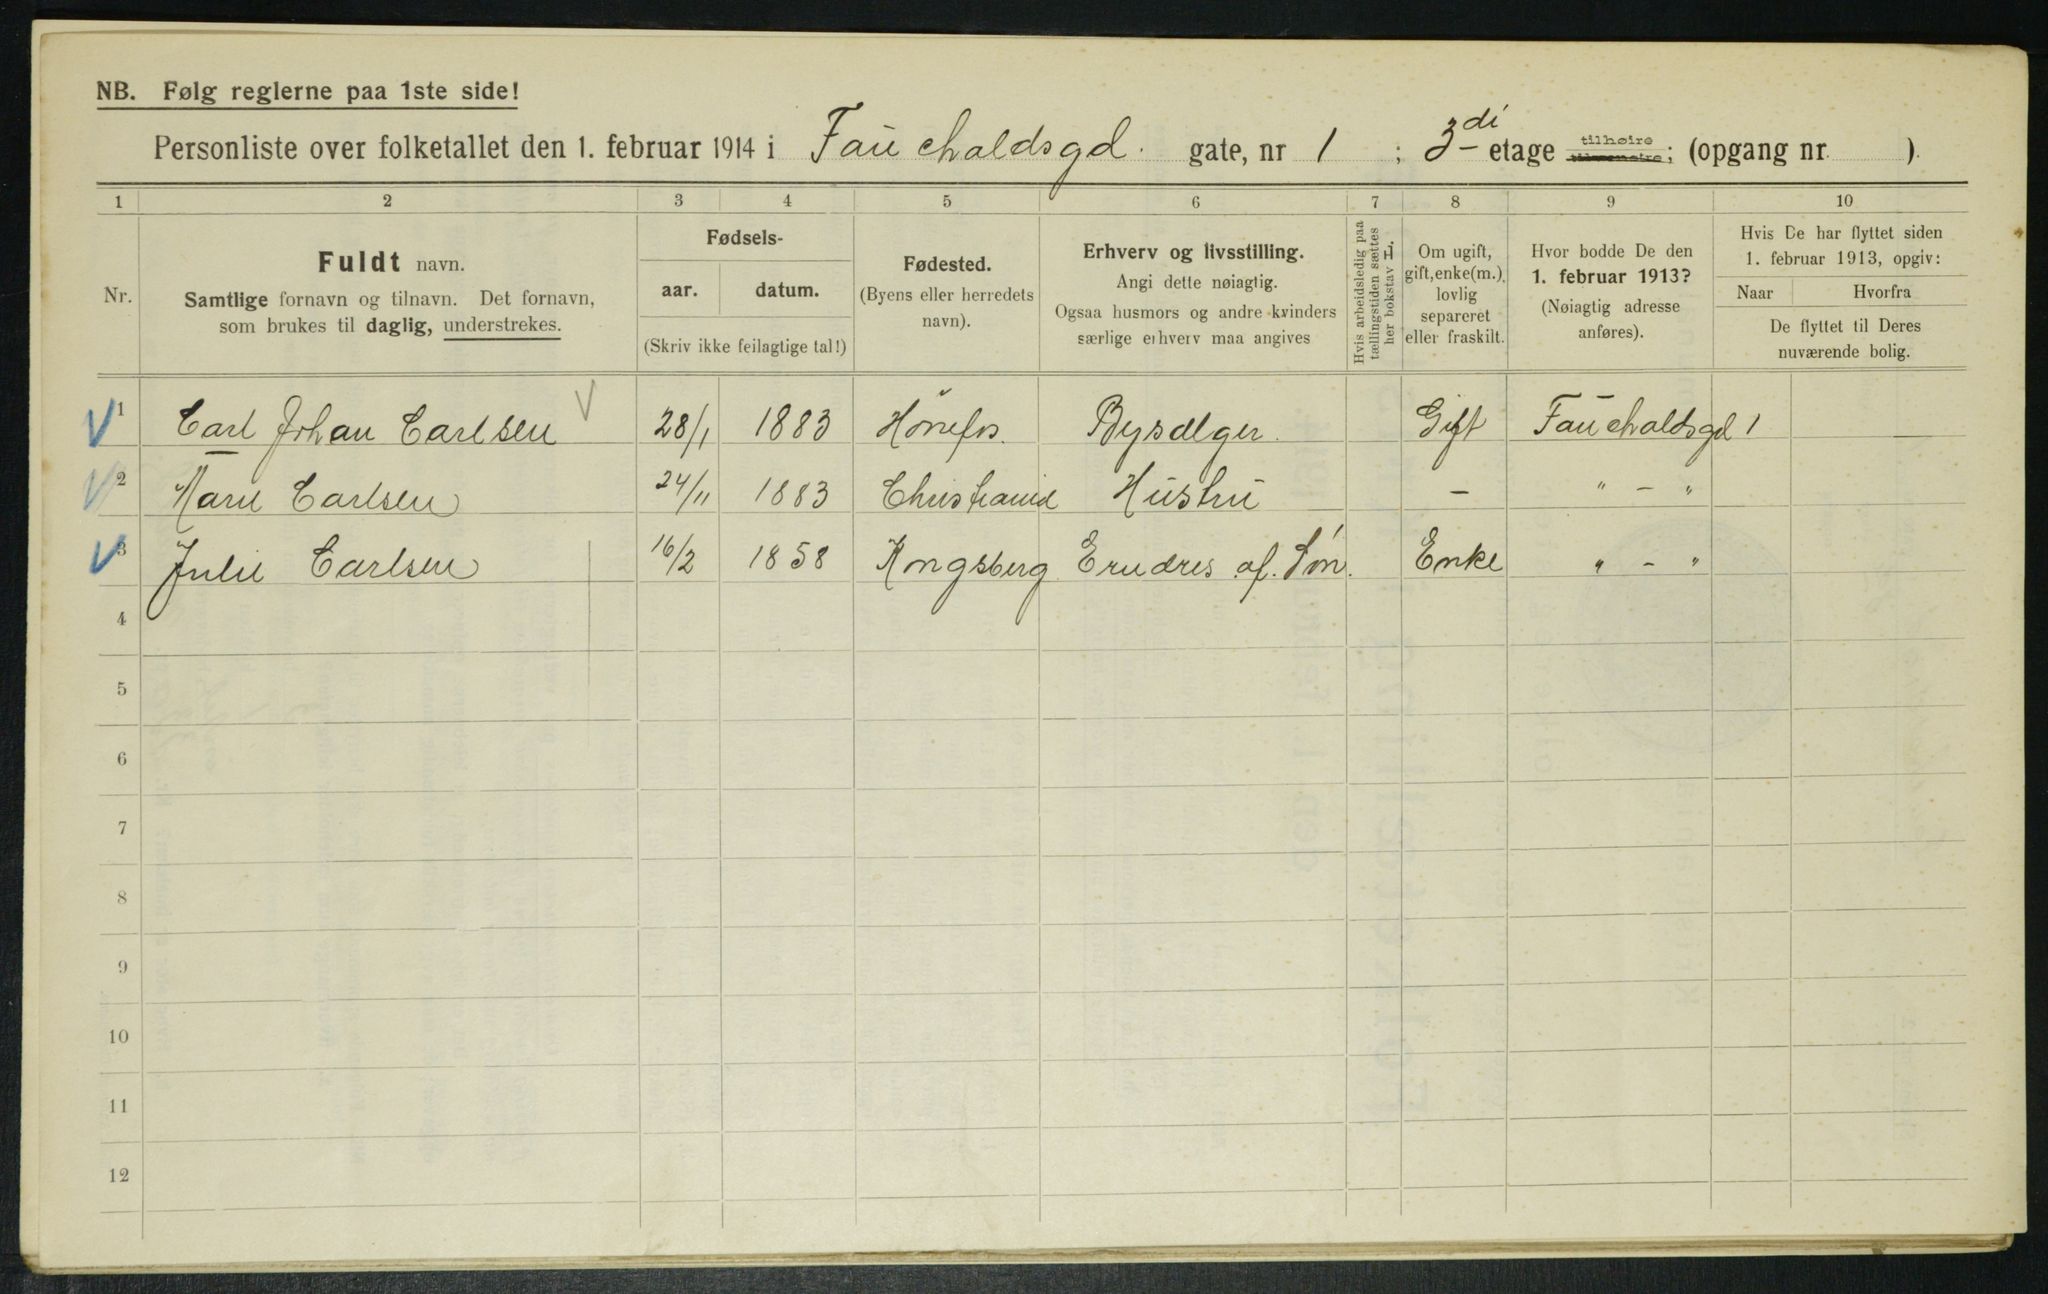 NB. Følg reglerne paa 1ste side!
Personliste over folketallet den 1. februar 1914 i Fauchaldsgd. gate, nr 1 ; 3di etage tilhøire tilvenstre; (opgang nr. ).
1 2 3 4 5 6 7 8 9 10
Nr.
Fuldt navn.
Samtlige fornavn og tilnavn. Det fornavn,
som brukes til daglig, understrekes.
Fødsels-
aar. datum.
(Skriv ikke feilagtige tal!)
Fødested.
(Byens eller herredets
navn).
Erhverv og livsstilling.
Angi dette nøiagtig.
Ogsaa husmors og andre kvinders
særlige erhverv maa angives
Hvis arbeidsledig paa
tællingstiden sættes
her bokstav L.
Om ugift,
gift, enke(m.),
lovlig
separeret
eller fraskilt.
Hvor bodde De den
1. februar 1913?
(Nøiagtig adresse
anføres).
Hvis De har flyttet siden
1. februar 1913, opgiv:
Naar Hvorfra
De flyttet til Deres
nuværende bolig.
1 Carl Johan Carlsen 28/1 1883 Hønefos. Bysælger. Gift Fauchaldsgd 1
2 Marie Carlsen 24/11 1883 Christiania Hustru – " – "
3 Julie Carlsen 16/2 1858 Kongsberg Ernæres af. Søn. Enke " – "
4
5
6
7
8
9
10
11
12